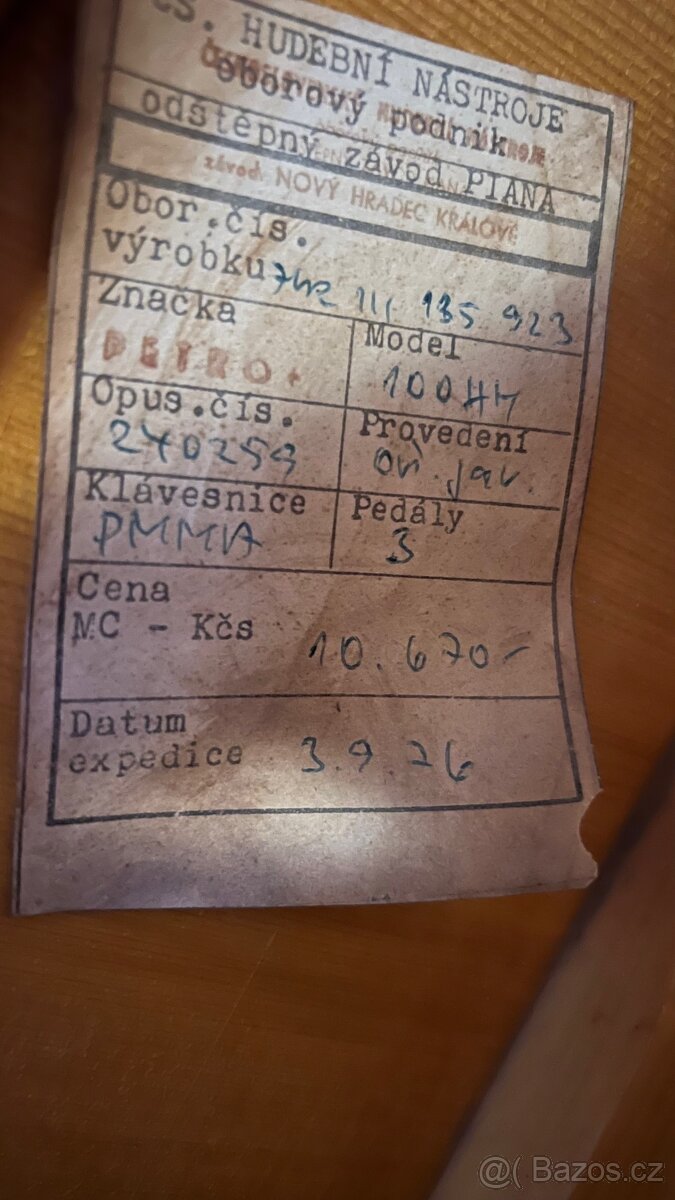 ČS. HUDEBNÍ NÁSTROJE
oborový podnik
odštěpný závod PIANA
závod: NOVÝ HRADEC KRÁLOVÉ
Obor.čís.
výrobku 111 135 923
Značka
PETROF
Model
100HH
Opus.čís.
240259
Provedení
oř. jav.
Klávesnice
PMMA
Pedály
3
Cena
MC - Kčs 10.670-
Datum
expedice 3.9.76
@( Bazos.cz